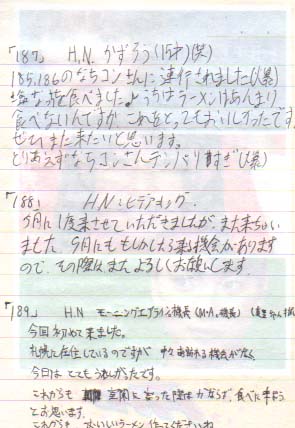 「187」 H.N. かずろう (15才)(笑)
185,186のなちコンさんに連行されました(爆)
塩な 食べました。 うちはラーメンはあんまり
食べないんですが これはとってもおいしかったです。
ぜひまた来たいと思います。
とりあえずなちコンさんテンパりすぎ(爆)
「188」 H.N:ヒデヨキング.
5月に1度来させていただきましたが、また来ちゃい
ました。9月にももしかしたら来る機会があります
ので、その際はまたよろしくお願いします
「189」 H.N モーニングエアライン機長
今回初めて来ました。
札幌に在住しているのですが 中々 機会がなく
今日は とても うれしかったです。
これからも 室蘭に 寄った際は かならず 食べに来よう
と思います。
これからも おいしいラーメン 作ってくださいね